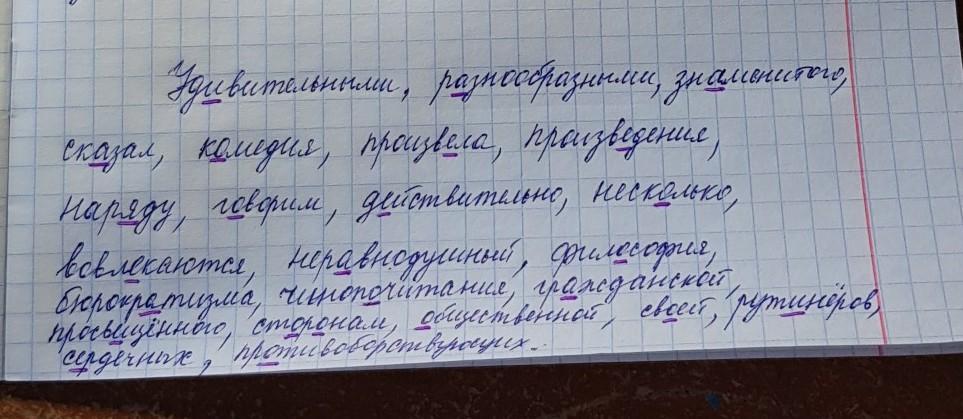 Удивительными, разнообразными, знаменитого,
сказал, комедия, произвела, произведения,
наряду, говорим, действительно, несколько,
вовлекаются, неравнодушный, философия,
бюрократизма, чинопочитания, гражданской,
просвещённого, сторонам, общественной, своей, рутинёров,
сердечных, противоборствующих.